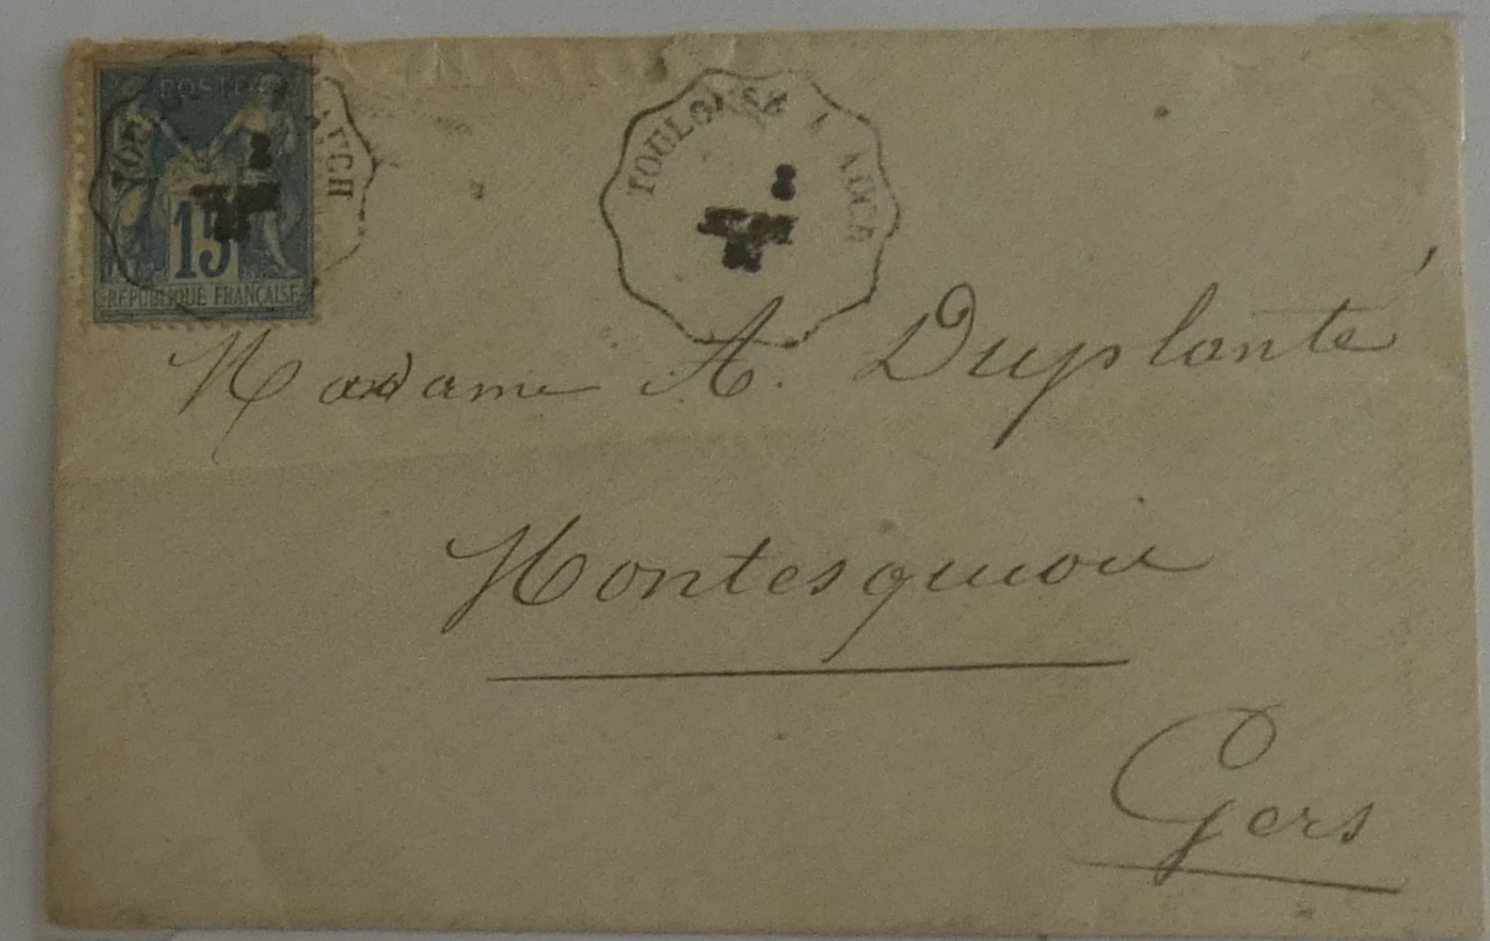 POSTES
15
REPUBLIQUE FRANÇAISE
TOU AUCH
2
TOULOUSE A AUCH
8
Madame A. Duplanté
Montesquiou
Gers